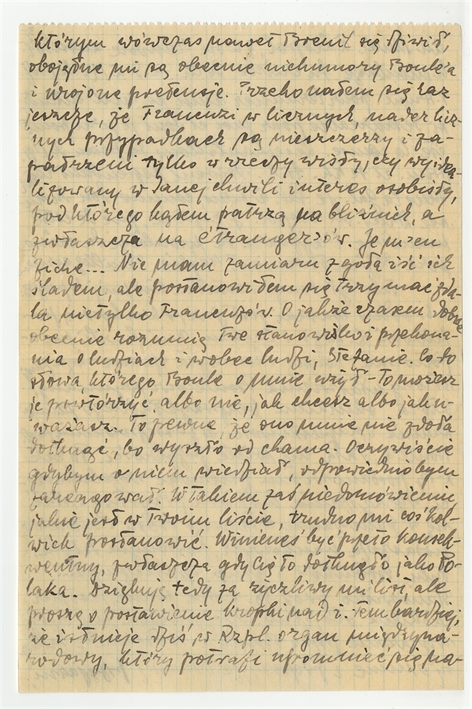 którym wówczas nawet Breuil się dziwił,
obojętne mi są obecnie niehumory Boule'a
i urojone pretensje. Przekonałem się raz
jeszcze, że Francuzi w licznych, nader licz-
nych przypadkach są nieszczerzy i za-
patrzeni tylko w rzeczy
w danej chwili interes osobisty,
pod którego kątem patrzą na bliźnich, a
zwłaszcza na étranger'ów. Je m'en
fiche... Nie mam zamiaru zgoła iść ich
śladem, ale postanowiłem się trzymać zda-
la nietylko Francuzów. O jakże czasem dobrze
obecnie rozumię Twe stanowisko i przekona-
nia o ludziach i wobec ludzi, Stefanie. Co do
słowa którego Boule o mnie użył - to możesz
je powtórzyć albo nie, jak chcesz albo jak u-
ważasz. To pewne że ono mnie nie zdoła
dotknąć, bo wyszło od chama. Oczywiście
gdybym o niem wiedział, odpowiednio bym
zareagował. W takiem zaś niedomówieniu
jakie jest w Twoim liście, trudno mi cośkol-
wiek postanowić. Winieneś być przeto konsek-
wentny, zwłaszcza gdy Cię to dotknęło jako Po-
laka. Dziękuję tedy za życzliwy mi list, ale
proszę o postawienie kropki nad i. Tem bardziej,
że istnieje dziś w Rzpl. organ międzyna-
rodowy, który potrafi upomnieć się na-